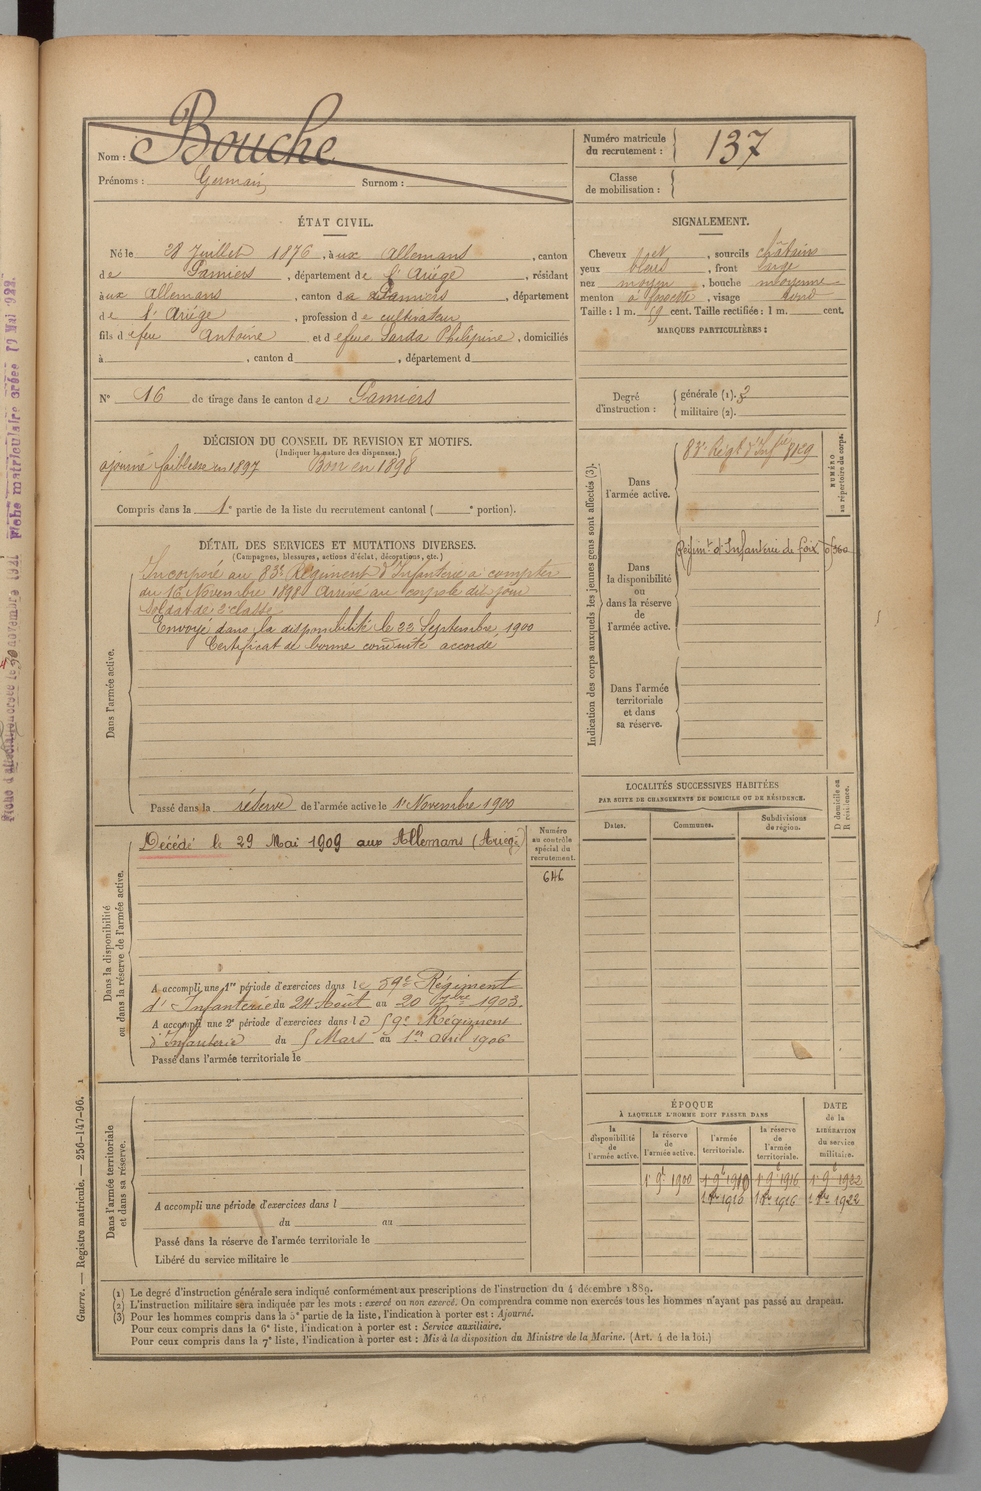 Bouche
Nom :
Prénoms : Germain Surnom :
Numéro matricule
du recrutement : 137
Classe
de mobilisation :
ÉTAT CIVIL.
Né le 28 Juillet 1876, à ux Allemans, canton
de Pamiers, département de l'Ariége, résidant
à ux Allemans, canton de Pamiers, département
de l'Ariége, profession de cultivateur
fils d e feu Antoine et d e feue Sarda Philipine, domiciliés
à , canton d , département d
SIGNALEMENT.
Cheveux , sourcils châtains
yeux bleus, front large
nez moyen, bouche moyenne
menton à fossette, visage rond
Taille : 1 m. 59 cent. Taille rectifiée : 1 m. cent.
MARQUES PARTICULIÈRES :
N° 16 de tirage dans le canton de Pamiers
Degré
d'instruction :
générale (1). 3
militaire (2).
DÉCISION DU CONSEIL DE REVISION ET MOTIFS.
(Indiquer la nature des dispenses.)
ajourné faiblesse en 1897 Bon en 1898
Compris dans la 1e partie de la liste du recrutement cantonal ( e portion).
DÉTAIL DES SERVICES ET MUTATIONS DIVERSES.
(Campagnes, blessures, actions d'éclat, décorations, etc.)
Dans l'armée active.
Incorporé au 83e Régiment d'Infanterie à compter
du 16 Novembre 1898 Arrivé au corps le dit jour
soldat de 2e classe
Envoyé dans la disponibilité le 22 Septembre 1900
Certificat de bonne conduite accordé
Passé dans la réserve de l'armée active le 1er Novembre 1900
Indication des corps auxquels les jeunes gens sont affectés (3).
NUMÉRO
au répertoire du corps.
Dans
l'armée active.
83e Régt d'Infie
Dans
la disponibilité
ou
dans la réserve
de
l'armée active.
Régimt d'Infanterie de Foix
Dans l'armée
territoriale
et dans
sa réserve.
LOCALITÉS SUCCESSIVES HABITÉES
PAR SUITE DE CHANGEMENTS DE DOMICILE OU DE RÉSIDENCE.
Dates.
Communes.
Subdivisions
de région.
D domicile ou
R résidence.
Dans la disponibilité
ou dans la réserve de l'armée active.
Décédé le 29 Mai 1909 aux Allemans (Ariège)
Numéro
au contrôle
spécial du
recrutement.
646
A accompli une 1re période d'exercices dans le 59e Régiment
d'Infanterie du 24 Août au 20 7bre 1903.
A accompli une 2e période d'exercices dans le 59e Régiment
d'Infanterie du 5 Mars au 1er avril 1906
Passé dans l'armée territoriale le
Dans l'armée territoriale
et dans sa réserve.
A accompli une période d'exercices dans l
du au
Passé dans la réserve de l'armée territoriale le
Libéré du service militaire le
ÉPOQUE
À LAQUELLE L'HOMME DOIT PASSER DANS
la
disponibilité
de
l'armée active.
la réserve
de
l'armée active.
l'armée
territoriale.
la réserve
de
l'armée
territoriale.
DATE
de la
LIBÉRATION
du service
militaire.
1r 9t 1900 1r 9t 1910 1r 9t 1916 1r 9t 1922
(1) Le degré d'instruction générale sera indiqué conformément aux prescriptions de l'instruction du 4 décembre 1889.
(2) L'instruction militaire sera indiquée par les mots : exercé ou non exercé. On comprendra comme non exercés tous les hommes n'ayant pas passé au drapeau.
(3) Pour les hommes compris dans la 5e partie de la liste, l'indication à porter est : Ajourné.
Pour ceux compris dans la 6e liste, l'indication à porter est : Service auxiliaire.
Pour ceux compris dans la 7e liste, l'indication à porter est : Mis à la disposition du Ministre de la Marine. (Art. 4 de la loi.)
Guerre. — Registre matricule. — 256-147-96. 1